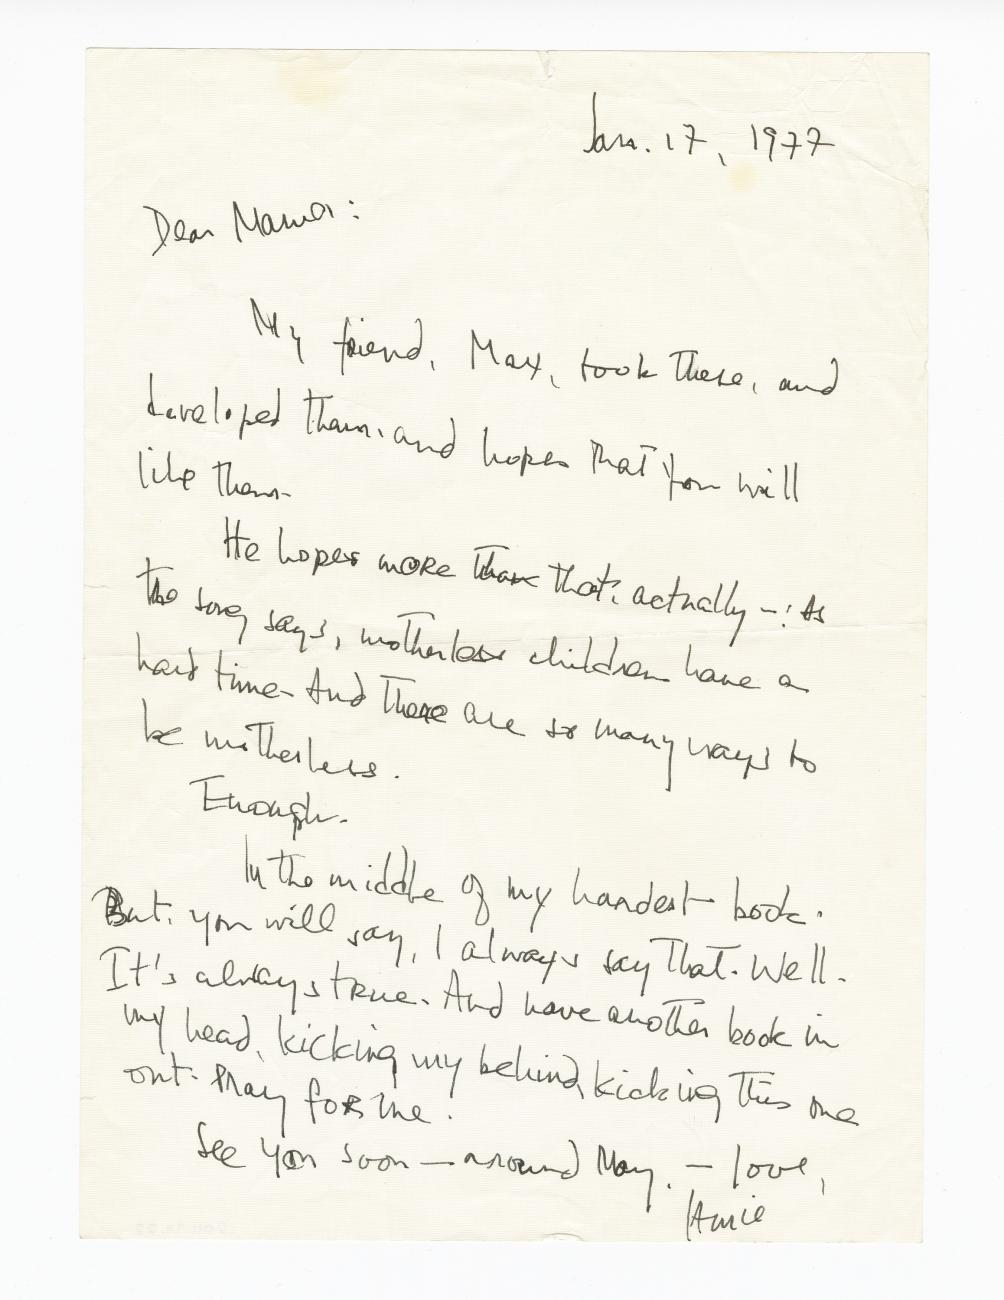 Jan. 17, 1977
Dear Mama:
My friend, Max, took these, and
developed them, and hopes that you will
like them.
He hopes more than that, actually —: As
the song says, motherless children have a
hard time. And there are so many ways to
be motherless.
Enough.
In the middle of my hardest book.
But, you will say, I always say that. Well.
It's always true. And have another book in
my head, kicking my behind, kicking this one
out. Pray for me.
See you soon — around May. — love,